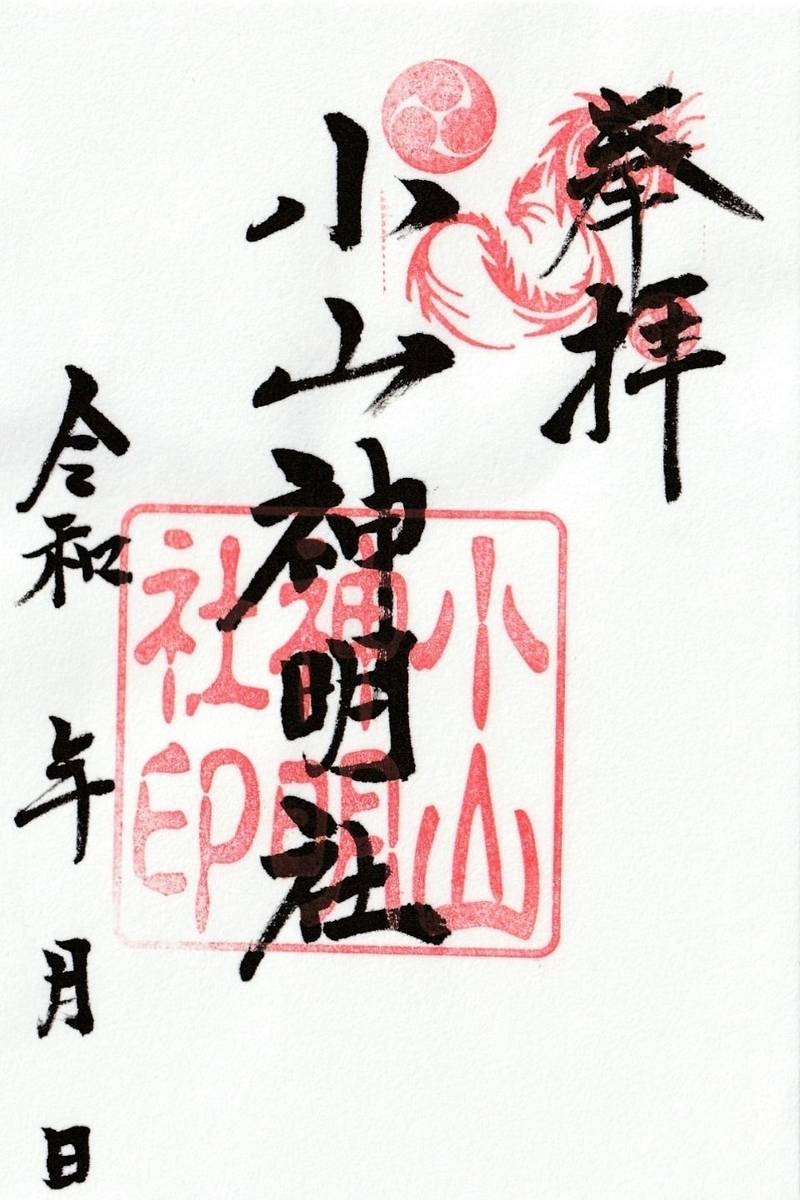 奉拝
小山神明社
小山
神明
社印
令和 年 月 日